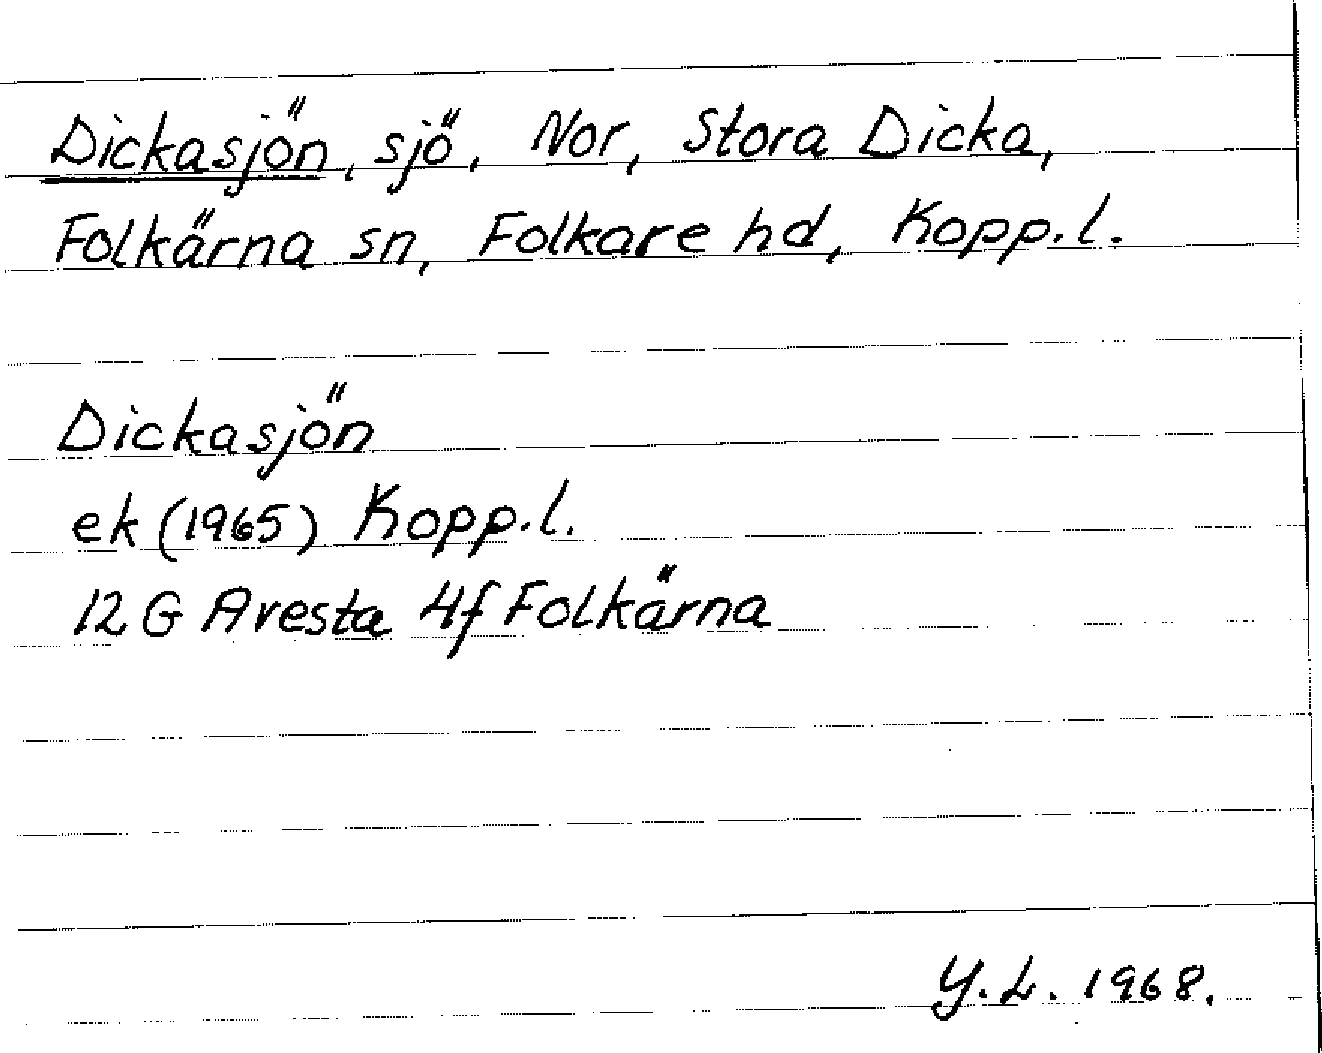 Dickasjön, sjö, Nor, Stora Dicka,
Folkärna sn, Folkare hd, Kopp.l.
Dickasjön
ek (1965) Kopp.l.
12 G Avesta 4f Folkärna
Y.L. 1968.